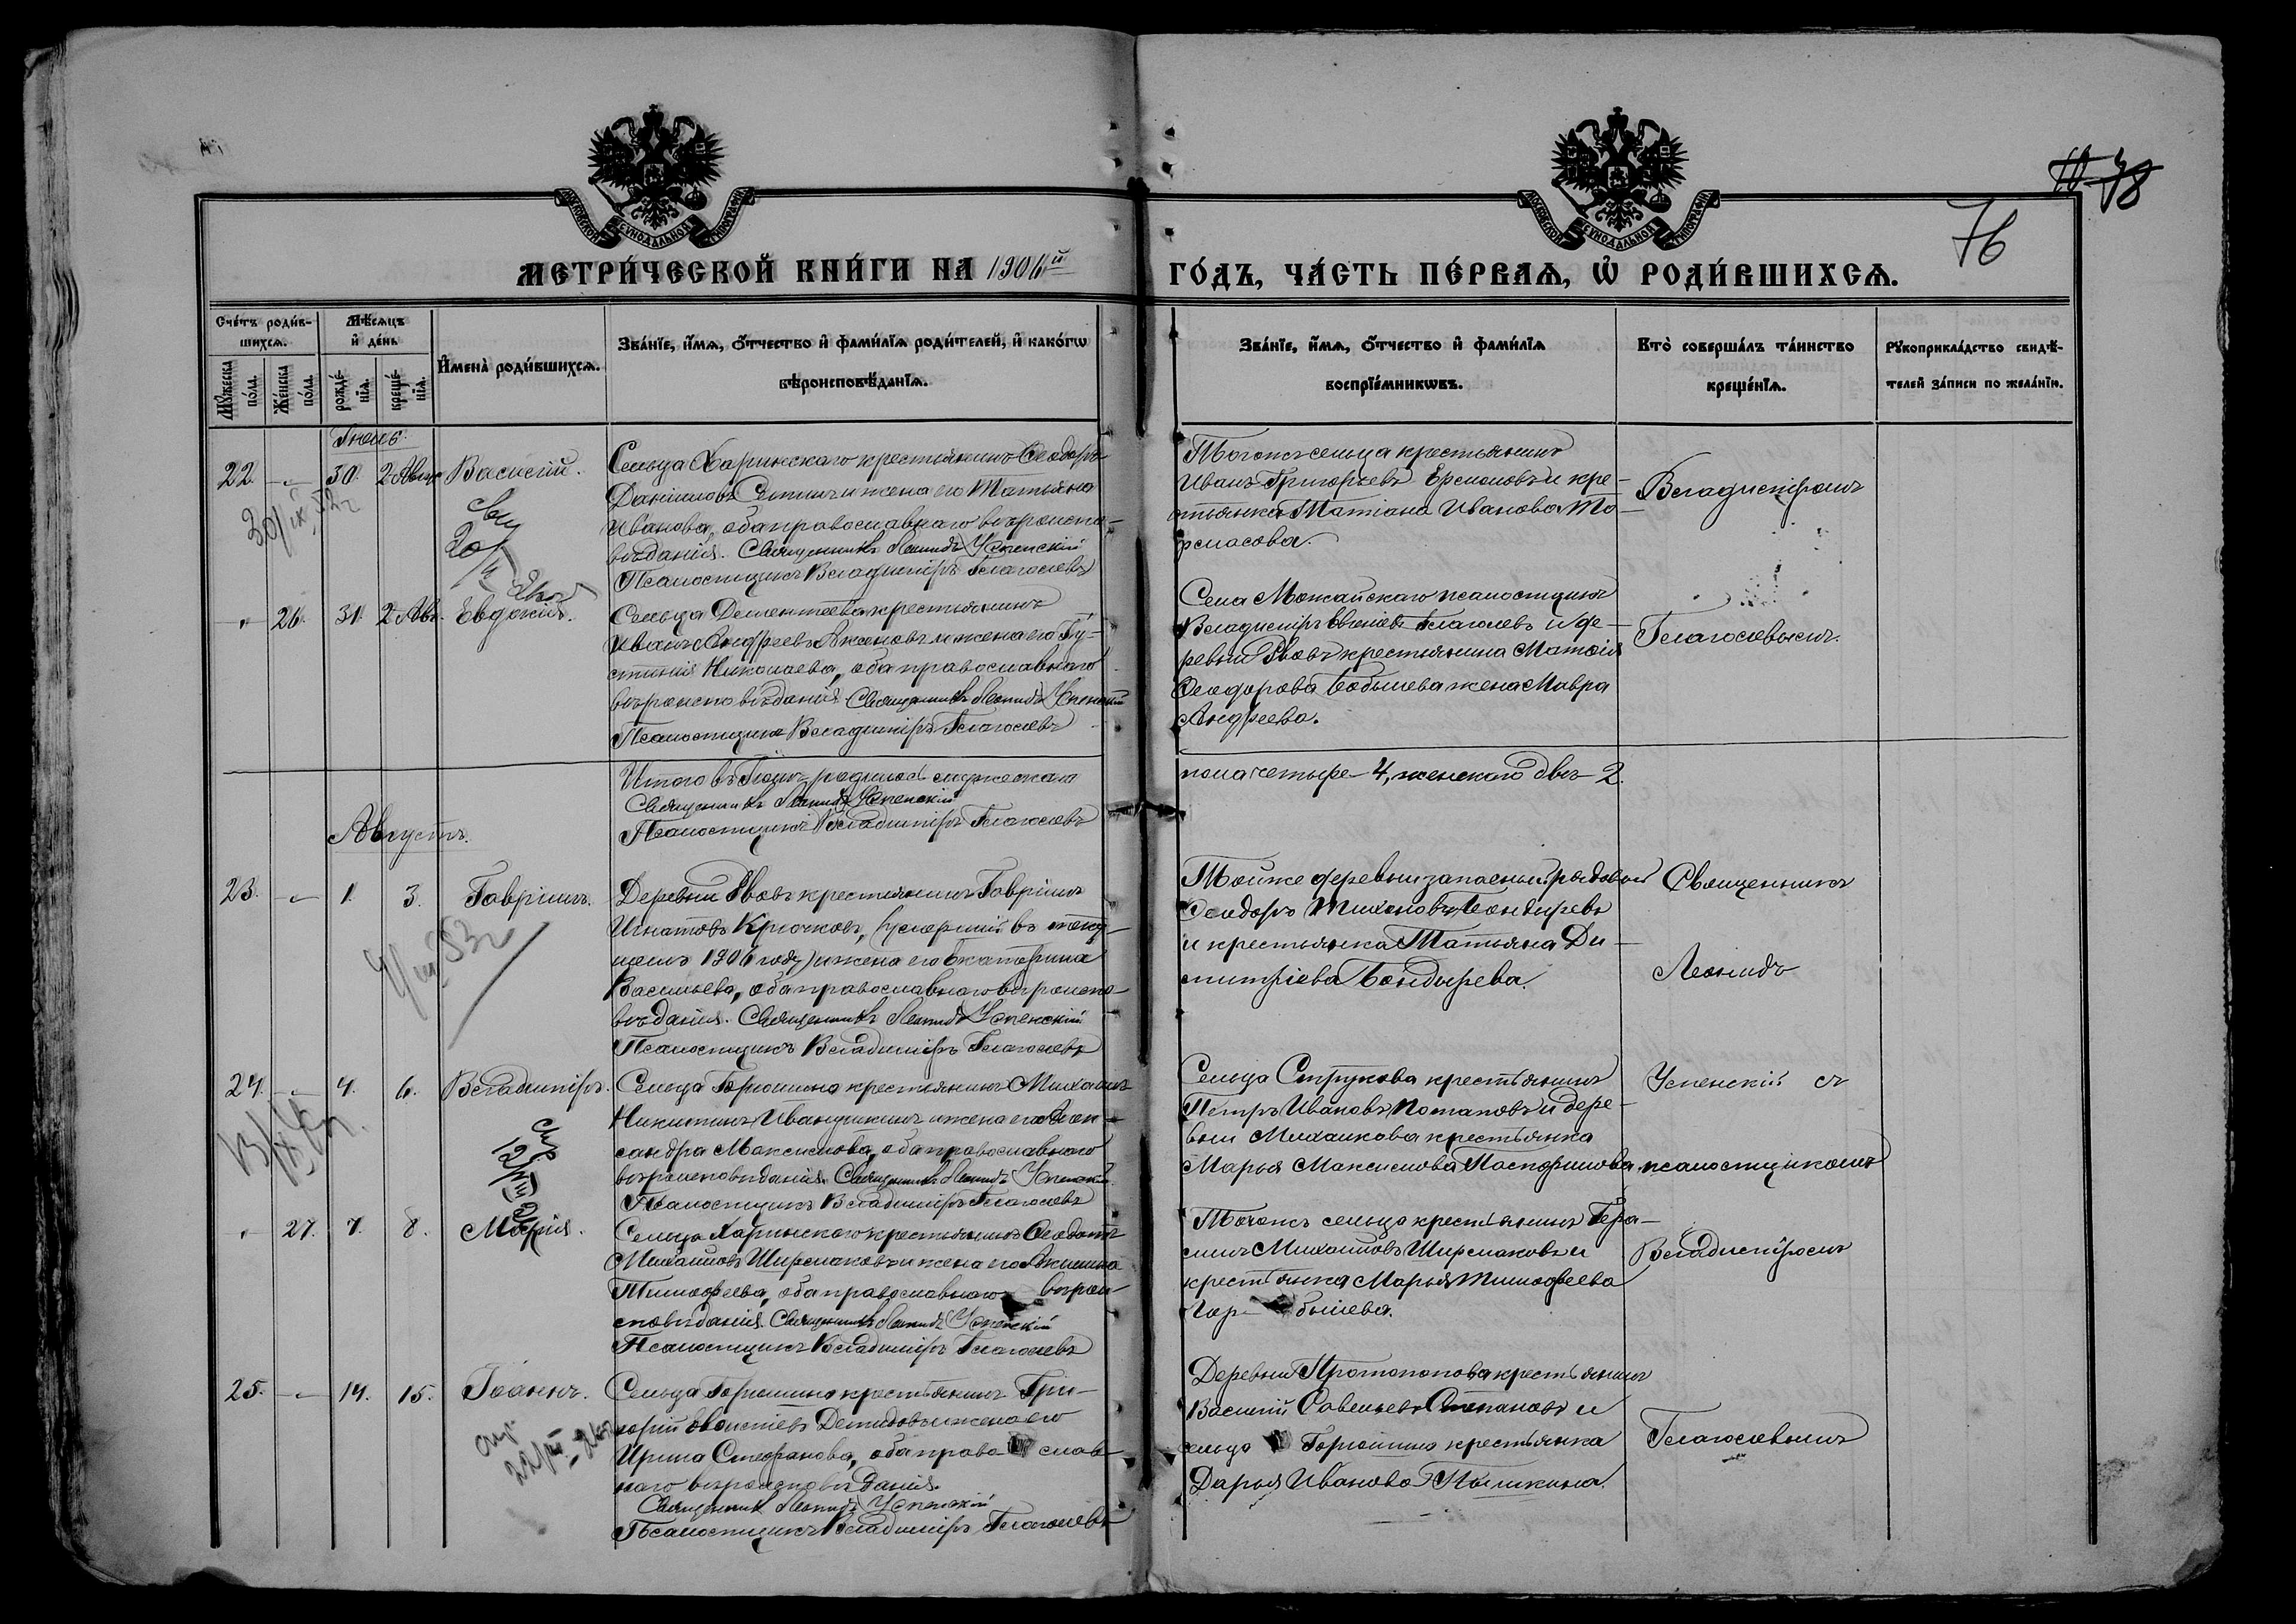 10 78
76
МОСКОВСКОЙ СѴНОДАЛЬНОЙ ТИПОГРАФІИ
МОСКОВСКОЙ СѴНОДАЛЬНОЙ ТИПОГРАФІИ
МЕТРИ́ЧЕСКОЙ КНИ́ГИ НА 1906й
ГО́ДЪ, ЧА́СТЬ ПЕ́РВАѦ, Ѽ РОДИ́ВШИХСѦ.
Сче́тъ роди́в-
шихсѧ.
Мѣ́сѧцъ
и҆ де́нь
Мꙋ́жеска по́ла.
Же́нска по́ла.
рожде́-
нїѧ.
креще́-
нїѧ.
И҆мена̀ роди́вшихсѧ.
Зва́нїе, и҆́мѧ, ѻ҆́тчество и҆ фами́лїѧ роди́телей, и҆ како́гѡ
вѣроисповѣ́данїѧ.
Зва́нїе, и҆́мѧ, ѻ҆́тчество и҆ фами́лїѧ
воспрїе́мникѡвъ.
Кто̀ соверша́лъ та́инство
креще́нїѧ.
Рꙋкоприкла́дство свидѣ́-
телей за́писи по жела́нїю.
Іюль.
22. - 30. 2 Авг. Василій.
Сельца Харинскаго крестьянинъ Ѳеодоръ
Даніиловъ и жена его Татьяна
Иванова, оба православнаго вѣроиспо-
вѣданія. Священникъ Леонидъ Успенскій
Псаломщикъ Владиміръ Глаголевъ
Тогожъ сельца крестьянинъ
Иванъ Григорьевъ Ермоловъ и кре-
стьянка Татіана Иванова
Владиміромъ
" 26. 31. 2 Авг. Евдокія.
Сельца Дементеева крестьянинъ
Иванъ Андреевъ Аксеновъ и жена его Іу-
стинія Николаева, оба православнаго
вѣроисповѣданія Священникъ Леонидъ Успенскій
Псаломщикъ Владиміръ Глаголевъ
Села Можайскаго псаломщикъ
Владиміръ Глаголевъ и де-
ревни крестьянина Матѳія
Ѳеодорова Бобылева жена Мавра
Андреева.
Глаголевымъ.
Итого въ Іюлѣ родилось мужескаго
пола четыре - 4, женскаго двѣ - 2.
Священникъ Леонидъ Успенскій
Псаломщикъ Владиміръ Глаголевъ
Августъ.
23. - 1. 3. Гавріилъ.
Деревни крестьянинъ Гавріилъ
Игнатовъ Крючковъ, (умершій въ теку-
щемъ 1906 году) и жена его Екатерина
Васильева, оба православнаго вѣроиспо-
вѣданія. Священникъ Леонидъ Успенскій
Псаломщикъ Владиміръ Глаголевъ
Той же деревни запасный рядовой
Ѳеодоръ Тихоновъ Бондыревъ
и крестьянка Татьяна Ди-
митріева Бондырева.
Священникъ
Леонидъ
24. - 4. 6. Владиміръ.
Сельца Горюшина крестьянинъ Михаилъ
Никитинъ Ивандикинъ и жена его Алек-
сандра Максимова, оба православнаго
вѣроисповѣданія. Священникъ Леонидъ Успенскій
Псаломщикъ Владиміръ Глаголевъ
Сельца Струкова крестьянинъ
Петръ Ивановъ Потаповъ и дере-
вни Михалкова крестьянка
Марья Максимова
Успенскій съ
псаломщикомъ
" 27. 7. 8. Марія.
Сельца Харинскаго крестьянинъ Ѳеодотъ
Михайловъ Ширмаковъ и жена его Акилина
Тимоѳеева, оба православнаго вѣрои-
сповѣданія. Священникъ Леонидъ Успенскій
Псаломщикъ Владиміръ Глаголевъ
Тогожъ сельца крестьянинъ Гера-
симъ Михайловъ Ширмаковъ и
крестьянка Марья Тимоѳеева
Гор- бышева.
Владиміромъ
25. - 14. 15. Іоаннъ.
Сельца Горюшина крестьянинъ Гри-
горій Демидовъ и жена его
Ирина Стефанова, оба право слав-
наго вѣроисповѣданія.
Священникъ Леонидъ Успенскій
Псаломщикъ Владиміръ Глаголевъ
Деревни Протопопова крестьянинъ
Василій Савельевъ Степановъ и
сельца Горюшина крестьянка
Дарья Иванова Пышкина.
Глаголевымъ